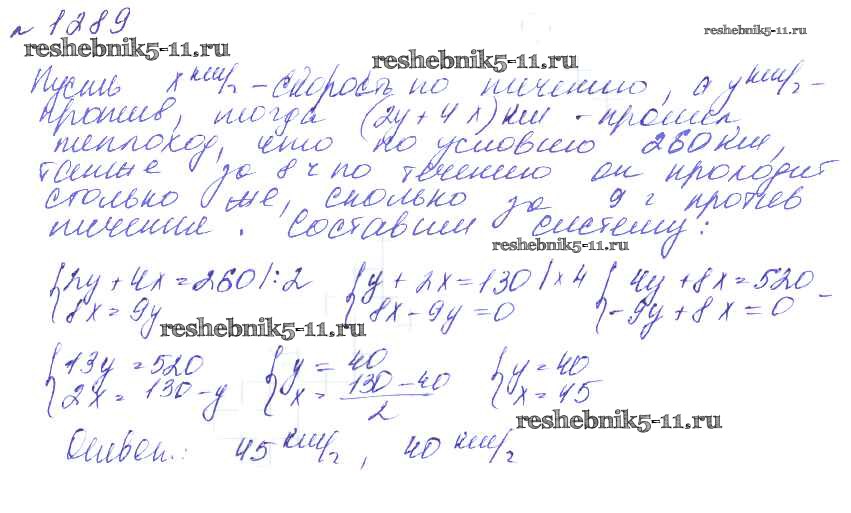 № 1289
reshebnik5-11.ru
reshebnik5-11.ru
reshebnik5-11.ru
Пусть x км/ч - скорость по течению, а y км/ч -
против, тогда (2y + 4x) км - прошел
теплоход, что по условию 260 км,
также за 8 ч по течению он проходит
столько же, сколько за 9 ч против
течения. Составим систему:
reshebnik5-11.ru
{2y + 4x = 260 |:2 {y + 2x = 130 |x4 {4y + 8x = 520
{8x = 9y {8x - 9y = 0 {-9y + 8x = 0 -
reshebnik5-11.ru
{13y = 520 {y = 40 {y = 40
{2x = 130 - y {x = (130 - 40)/2 {x = 45
reshebnik5-11.ru
Ответ: 45 км/ч, 40 км/ч